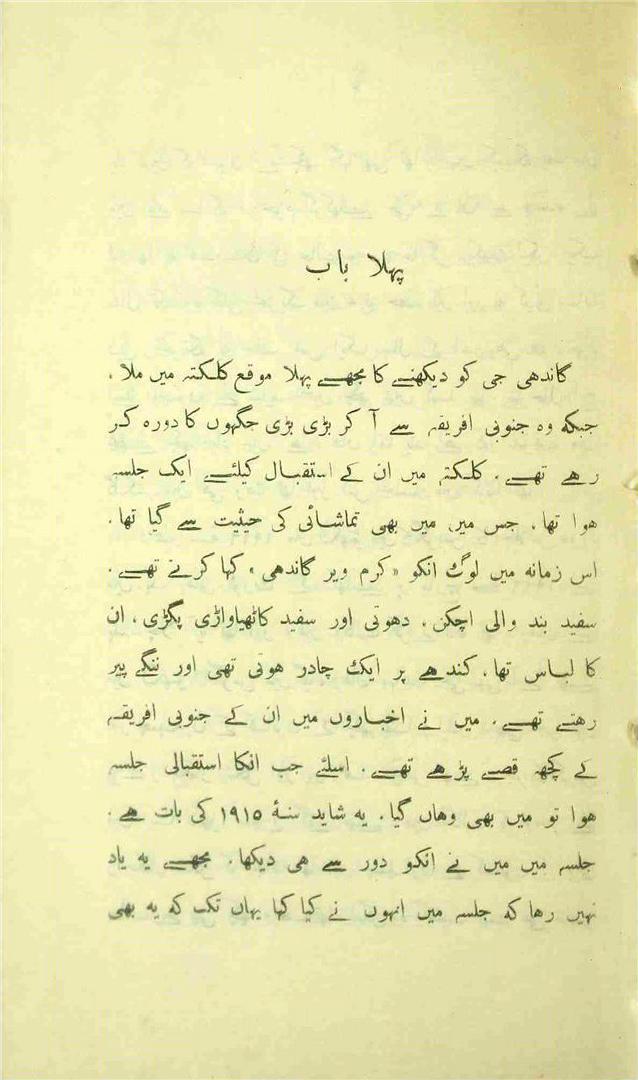 پہلا باب
گاندھی جی کو دیکھنے کا مجھے پہلا موقع کلکتہ میں ملا ۔
جبکہ وہ جنوبی افریقہ سے آ کر بڑی بڑی جگہوں کا دورہ کر
رہے تھے ۔ کلکتہ میں ان کے استقبال کیلئے ایک جلسہ
ہوا تھا ۔ جس میں میں بھی تماشائی کی حیثیت سے گیا تھا ۔
اس زمانہ میں لوگ انکو «کرم ویر گاندھی» کہا کرتے تھے ۔
سفید بند والی اچکن ۔ دھوتی اور سفید کاٹھیاواڑی پگڑی ۔ ان
کا لباس تھا ۔ کندھے پر ایک چادر ہوتی تھی اور ننگے پیر
رہتے تھے ۔ میں نے اخباروں میں ان کے جنوبی افریقہ
کے کچھ قصے پڑھے تھے ۔ اسلئے جب انکا استقبالی جلسہ
ہوا تو میں بھی وہاں گیا ۔ یہ شاید سنۂ ۱۹۱۵ کی بات ہے ۔
جلسہ میں میں نے انکو دور سے ہی دیکھا ۔ مجھے یہ یاد
نہیں رہا کہ جلسہ میں انہوں نے کیا کہا یہاں تک کہ یہ بھی